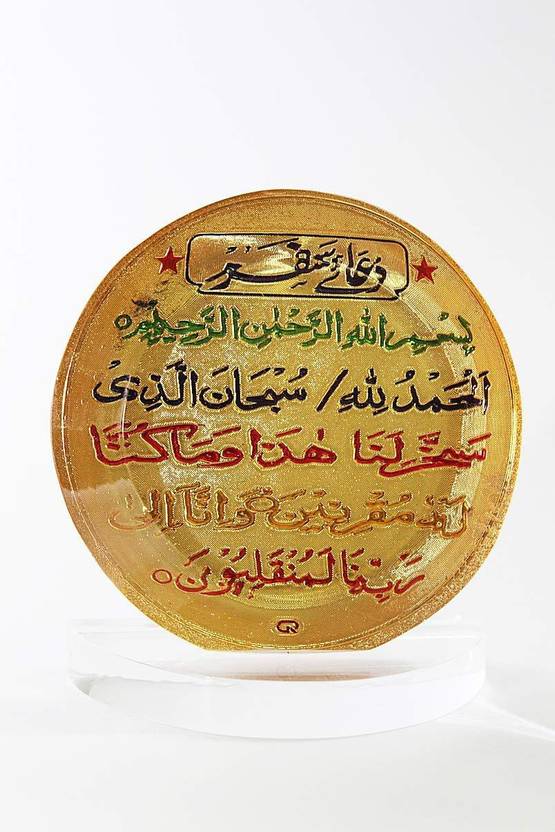 دعائے سفر
بِسْمِ اللهِ الرَّحْمٰنِ الرَّحِيْمِ ۝
اَلْحَمْدُ لِلّٰهِ / سُبْحَانَ الَّذِىْ
سَخَّرَ لَنَا هٰذَا وَمَا كُنَّا
لَهٗ مُقْرِنِيْنَ ۝ وَاِنَّا اِلىٰ
رَبِّنَا لَمُنْقَلِبُوْنَ ۝